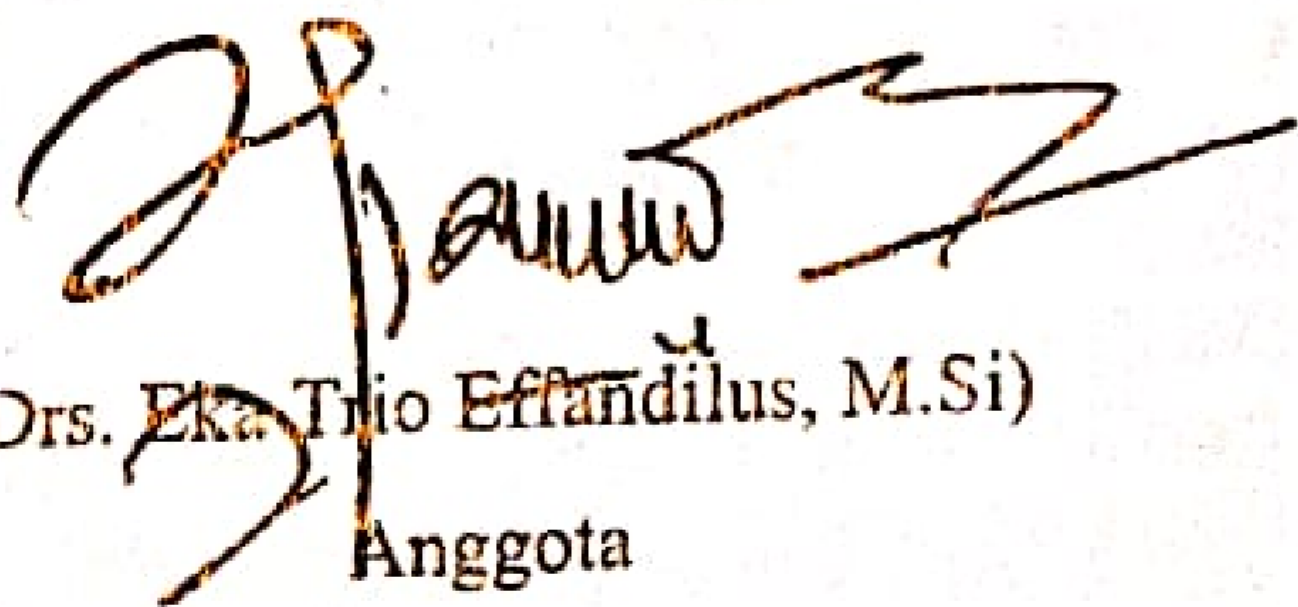 Drs. Eka Trio Effandilus, M.Si)
Anggota